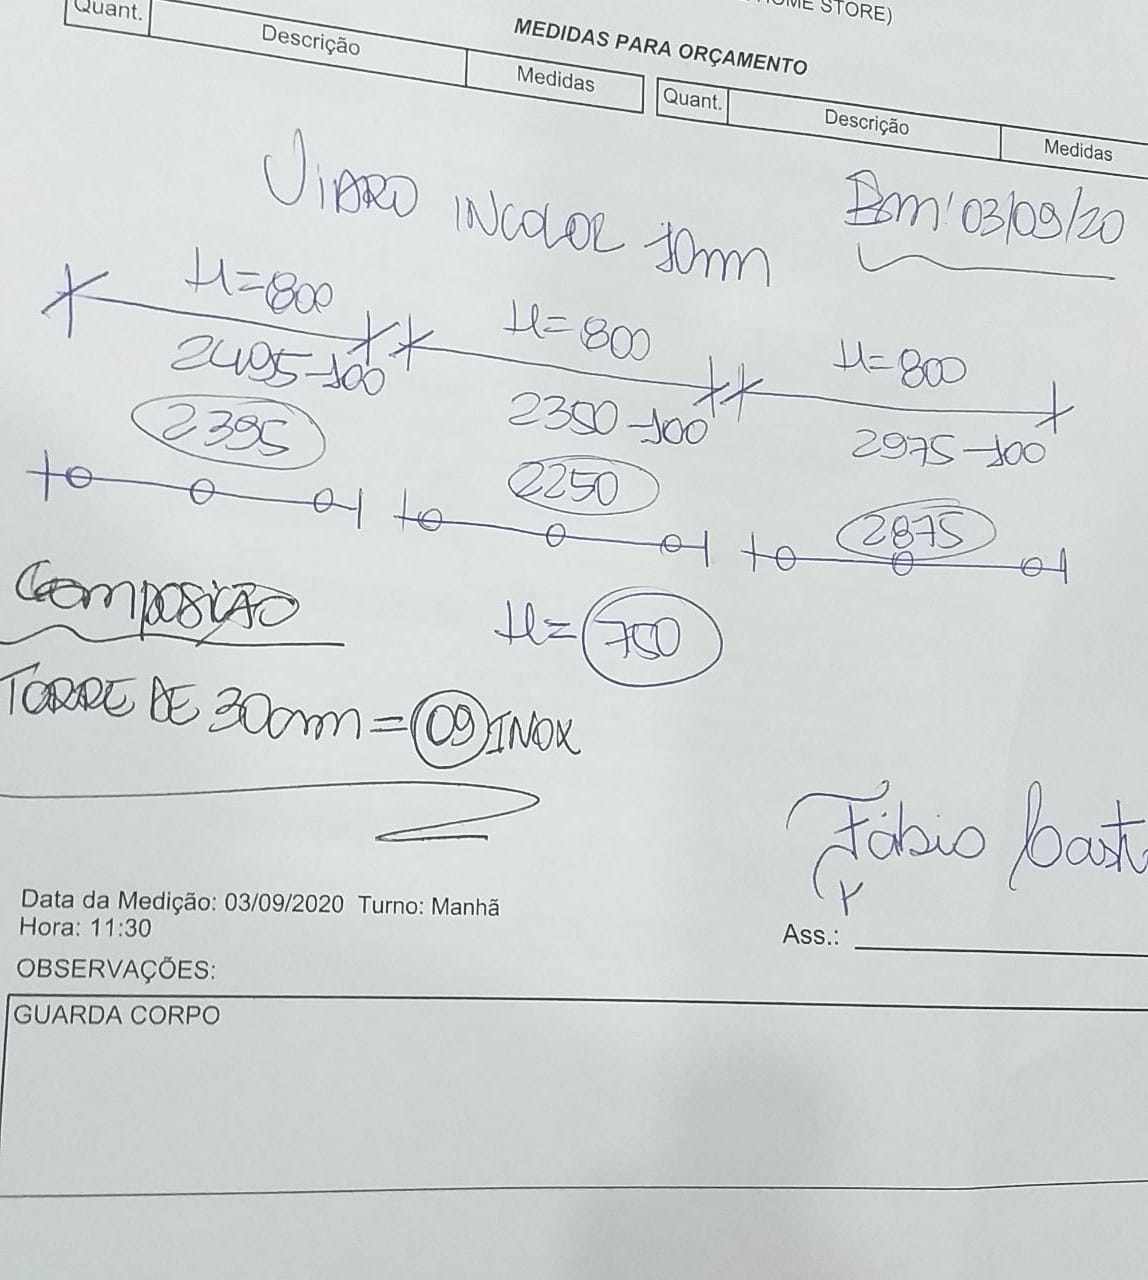 HOME STORE)
MEDIDAS PARA ORÇAMENTO
Quant. Descrição Medidas Quant. Descrição Medidas
VIDRO INCOLOR 10mm
Bm! 03/09/20
H=800 H=800 H=800
2495-100 2350-100 2975-100
2395 2250 2875
COMPOSIÇÃO
H= 750
TORRE DE 30cm = 09 INOX
Fábio
Data da Medição: 03/09/2020 Turno: Manhã
Hora: 11:30
Ass.:
OBSERVAÇÕES:
GUARDA CORPO